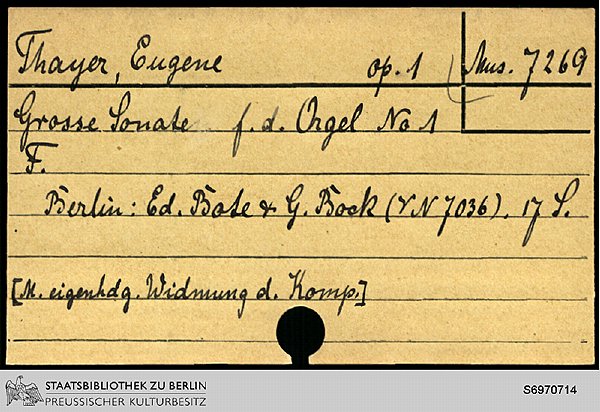 Thayer, Eugene op. 1 Mus. 7269
Grosse Sonate f. d. Orgel No 1
F.
Berlin: Ed. Bote & G. Bock (VN 7036). 17 S.
[M. eigenhdg. Widmung d. Komp.]
STAATSBIBLIOTHEK ZU BERLIN
PREUSSISCHER KULTURBESITZ
S6970714